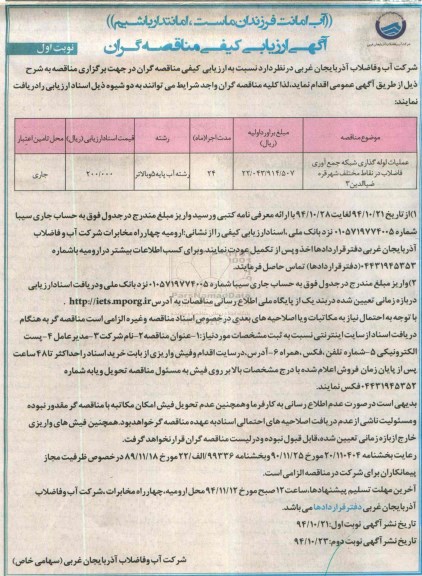 ((آب امانت فرزندان ماست، امانتدار باشیم))
آگهی ارزیابی کیفی مناقصه گران
نوبت اول
شرکت آب و فاضلاب آذربایجان غربی در نظر دارد نسبت به ارزیابی کیفی مناقصه گران در جهت برگزاری مناقصه به شرح
ذیل از طریق آگهی عمومی اقدام نماید، لذا کلیه مناقصه گران واجد شرایط می توانند به دو شیوه ذیل اسناد ارزیابی را دریافت
نمایند:
موضوع مناقصه	مبلغ برآورد اولیه (ریال)	مدت اجرا (ماه)	رشته	قیمت اسناد ارزیابی (ریال)	محل تامین اعتبار
عملیات لوله گذاری شبکه جمع آوری فاضلاب در نقاط مختلف شهر قره ضیاالدین ۳	۲۲/۰۴۳/۹۱۴/۵۰۷	۲۴	رشته آب پایه ۵ و بالاتر	۲۰۰/۰۰۰	جاری
۱) از تاریخ ۹۴/۱۰/۲۱ لغایت ۹۴/۱۰/۲۸ با ارائه معرفی نامه کتبی و رسید واریز مبلغ مندرج در جدول فوق به حساب جاری سیبا
شماره ۰۱۰۵۷۱۹۷۷۴۰۰۵ نزد بانک ملی، اسناد ارزیابی کیفی را از نشانی: ارومیه چهارراه مخابرات شرکت آب و فاضلاب
آذربایجان غربی دفتر قراردادها اخذ و پس از تکمیل عودت نمایند و برای کسب اطلاعات بیشتر در ارومیه با شماره
۰۴۴۳۱۹۴۵۳۵۳ (دفتر قراردادها) تماس حاصل فرمایند.
۲) واریز مبلغ مندرج در جدول فوق به حساب جاری سیبا شماره ۰۱۰۵۷۱۹۷۷۴۰۰۵ نزد بانک ملی و دریافت اسناد ارزیابی
در بازه زمانی تعیین شده در بند یک از پایگاه ملی اطلاع رسانی مناقصات به آدرس http://iets.mporg.ir .
با توجه به احتمال نیاز به مکاتبات و یا اصلاحیه های بعدی در خصوص اسناد مناقصه و غیره الزامی است مناقصه گر به هنگام
دریافت اسناد از سایت اینترنتی نسبت به ثبت مشخصات مورد نیاز: ۱-عنوان مناقصه ۲-نام شرکت ۳-مدیر عامل ۴-پست
الکترونیکی ۵-شماره تلفن، فکس، همراه ۶-آدرس، در سایت اقدام و فیش واریزی از بابت خرید اسناد را حداکثر تا ۴۸ ساعت
پس از پایان زمان فروش اعلام شده با درج مشخصات بالا بر روی فیش به مسئول مناقصه تحویل و یا به شماره
۰۴۴۳۱۹۴۵۳۵۲ فکس نمایند.
بدیهی است در صورت عدم اطلاع رسانی به کارفرما و همچنین عدم تحویل فیش امکان مکاتبه با مناقصه گر مقدور نبوده
و مسئولیت ناشی از عدم دریافت اصلاحیه های احتمالی اسناد به عهده مناقصه گر خواهد بود. همچنین فیش های واریزی
خارج از بازه زمانی تعیین شده، قابل قبول نبوده و در لیست مناقصه گران قرار نخواهد گرفت.
رعایت بخشنامه ۲۰/۱۱۰۴۰۴ مورخ ۹۰/۱۱/۲۵ و بخشنامه ۹۹۳۳۶/الف/۲۲ مورخ ۸۹/۱۱/۱۸ در خصوص ظرفیت مجاز
پیمانکاران برای شرکت در مناقصه الزامی است.
آخرین مهلت تسلیم پیشنهادها، ساعت ۱۲ صبح مورخ ۹۴/۱۱/۱۲ محل ارومیه، چهارراه مخابرات، شرکت آب و فاضلاب
آذربایجان غربی دفتر قراردادها می باشد.
تاریخ نشر آگهی نوبت اول: ۹۴/۱۰/۲۱
تاریخ نشر آگهی نوبت دوم: ۹۴/۱۰/۲۳
شرکت آب و فاضلاب آذربایجان غربی (سهامی خاص)